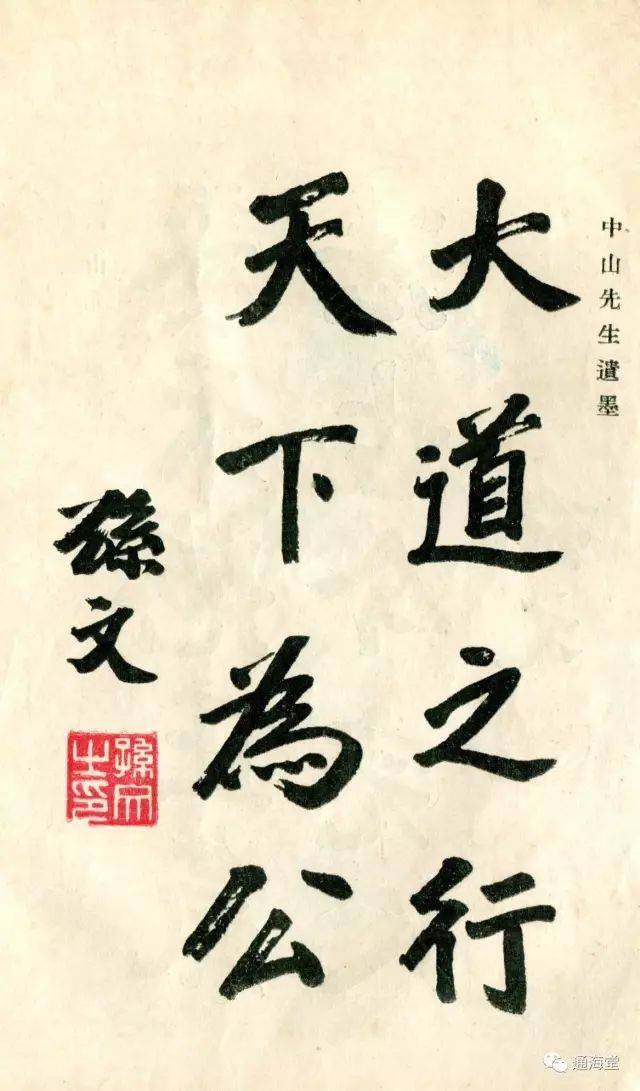 中山先生遺墨
大道之行
天下為公
孫文
孫文之印
通海堂